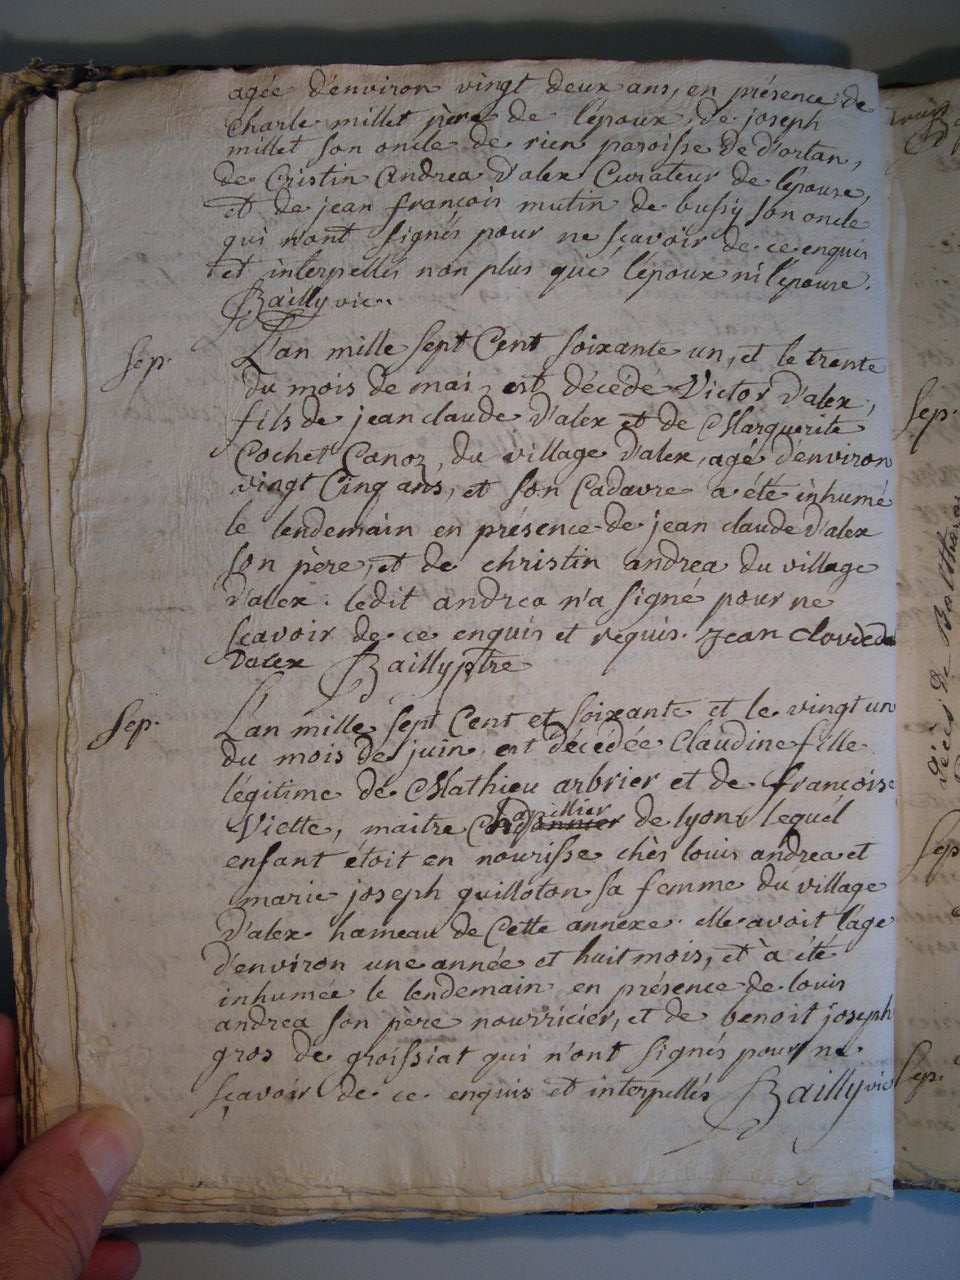 agée d'environ vingt deux ans, en présence de
Charle millet père de l'époux, de joseph
millet son oncle de rien paroisse de d'ortan,
de Cristin Andrea D'alex Curateur de l'épouse,
et de jean françois mutin de bussy son oncle
qui n'ont signés pour ne sçavoir de ce enquis
et interpellés non plus que l'époux ni l'épouse.
Bailly vic.
Sep.
L'an mille sept Cent soixante un, et le trente
du mois de mai, est décédé Victor D'alex,
fils de jean claude D'alex et de Marguerite
Cochet Canoz, du village D'alex, agé d'environ
vingt Cinq ans, et son Cadavre a été inhumé
le lendemain en présence de jean claude D'alex
son père, et de christin andrea du village
D'alex. ledit andrea n'a signé pour ne
sçavoir de ce enquis et requis. Jean clovde
Dalex Bailly ptre
Sep.
L'an mille sept Cent et soixante et le vingt un
du mois de juin est décédée Claudine fille
légitime de Mathieu arbrier et de françoise
Viette, maitre de lyon lequel
enfant étoit en nourisse chès louis andrea et
marie joseph guilloton sa femme du village
D'alex hameau de Cette annexe. elle avoit l'age
d'environ une année et huit mois, et à été
inhumée le lendemain en présence de louis
andrea son père nourricier, et de benoit joseph
gros de groissiat qui n'ont signés pour ne
sçavoir de ce enquis et interpellés Bailly vic
Sep.
Sep.
Sep.
décès de Balthazar